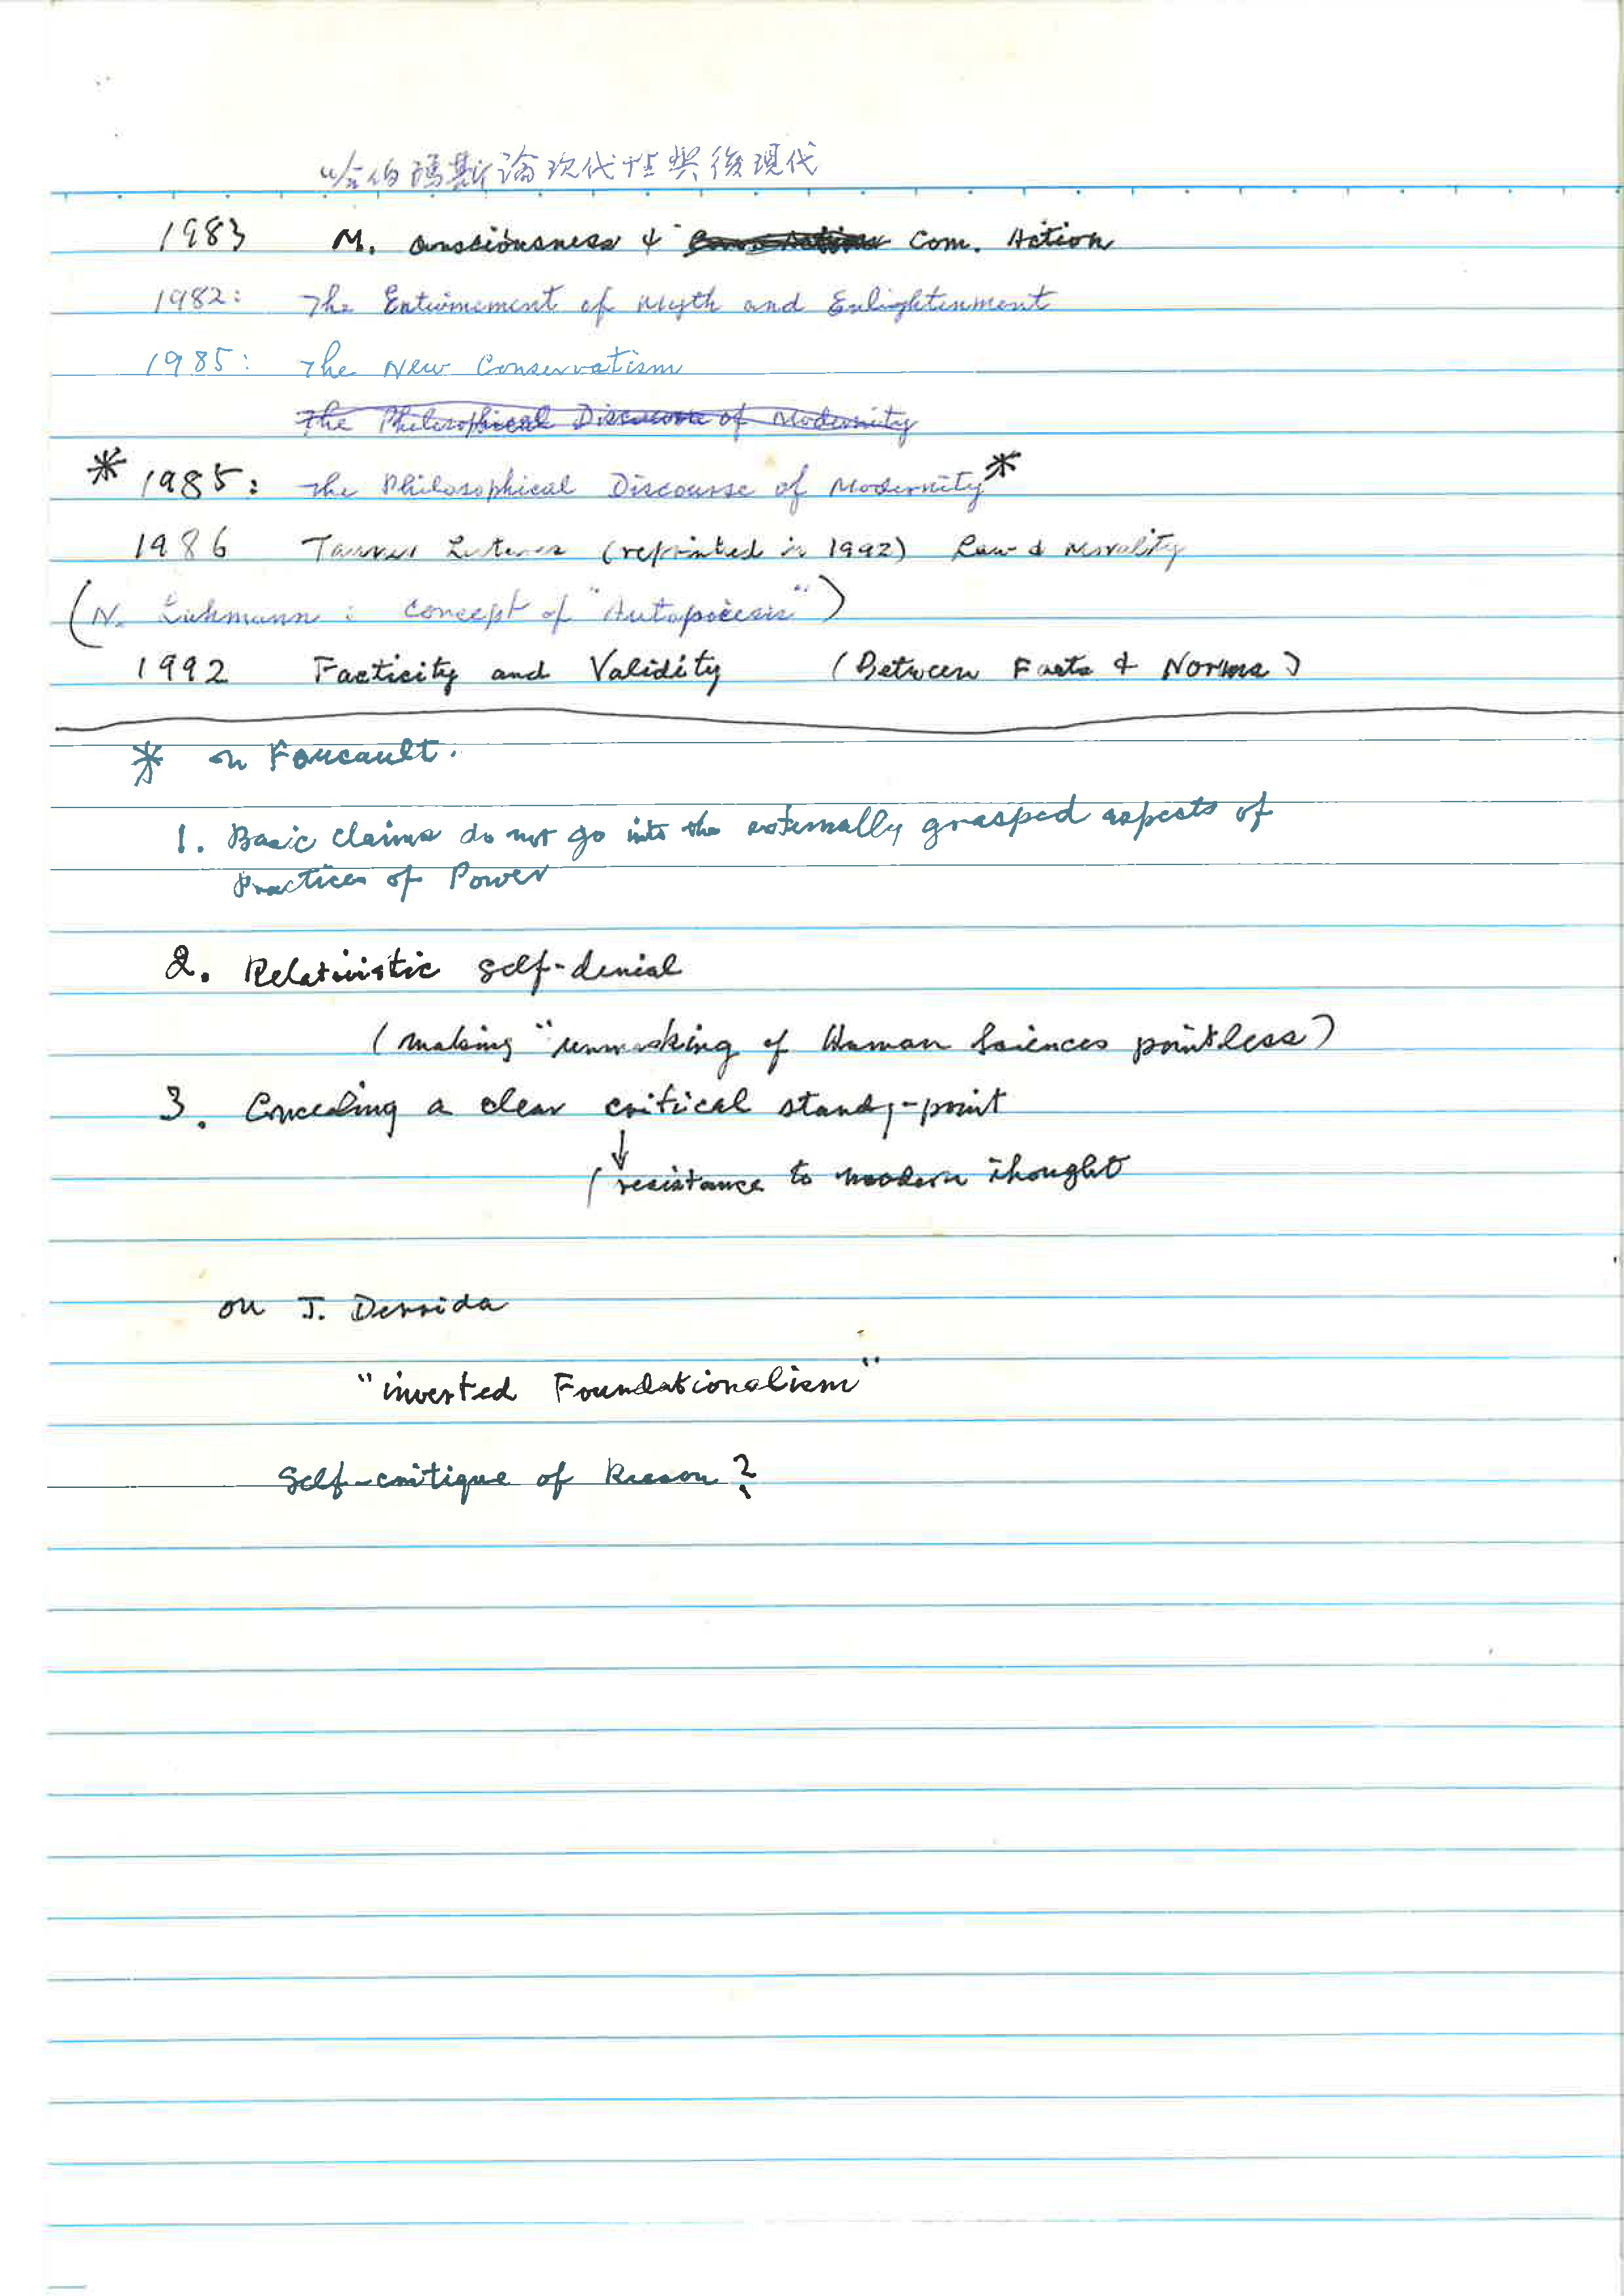 哈伯瑪斯論現代性與後現代
1983 M. Consciousness & Com. Action
1982: The Entwinement of Myth and Enlightenment
1985: The New Conservatism
The Philosophical Discourse of Modernity
* 1985: The Philosophical Discourse of Modernity *
1986 Tanner Lectures (reprinted in 1992) Law & Morality
(N. Luhmann : concept of "Autopoiesis")
1992 Facticity and Validity (Between Facts & Norms)
* on Foucault.
1. Basic claims do not go into the externally grasped aspects of
Practices of Power
2. Relativistic self-denial
(making "unmasking of Human Sciences pointless)
3. Concealing a clear critical stand-point
↓
(resistance to modern thought
on J. Derrida
"inverted Foundationalism"
Self-critique of Reason?